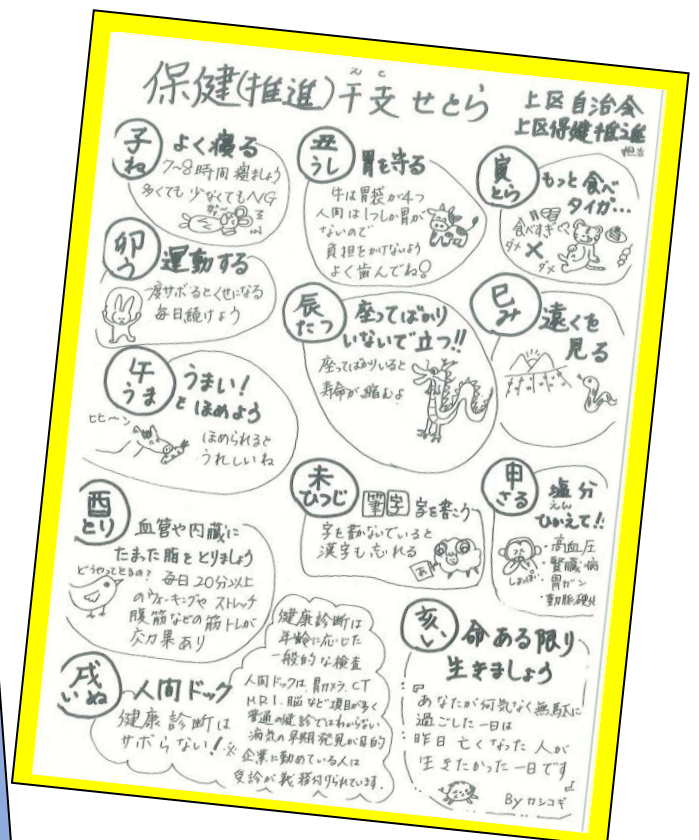 保健(推進)干支せとら
えと
上区自治会
上区保健推進
担当
子
ね
よく寝る
7~8時間寝ましょう
多くても少なくてもNG
丑
うし
胃を守る
牛は胃袋が4つ
人間は1つしか胃が
ないので
負担をかけないよう
よく歯んでね
寅
とら
もっと食べ
タイガ…
食べすぎ
ダメ
ダメ
卯
う
運動する
一度サボるとくせになる
毎日続けよう
辰
たつ
座ってばかり
いないで立つ!!
座ってばかりいると
寿命が縮むよ
巳
み
遠くを
見る
午
うま
うまい!
とほめよう
ヒヒーン
ほめられると
うれしいね
未
ひつじ
筆字 字を書こう
字を書かないでいると
漢字も忘れる
あ
申
さる
塩分
えん
ひかえて!!
・高血圧
・腎臓病
・胃ガン
・動脈硬化
しょっぱい
酉
とり
血管や内臓に
たまった脂をとりましょう
どうやってとるの?
毎日20分以上
のウォーキングやストレッチ
腹筋などの筋トレが
効果あり
戌
いぬ
人間ドック
健康診断は
サボらない!※
健康診断は
年齢に応じた
一般的な検査
人間ドックは、胃カメラ、CT
MRI、脳など項目が多く
普通の健診ではわからない
病気の早期発見が目的
企業に勤めている人は
受診が義務付けられています。
亥
い
命ある限り
生きましょう
『あなたが何気なく無駄に
過ごした一日は
昨日亡くなった人が
生きたかった一日です』
By カシコギ